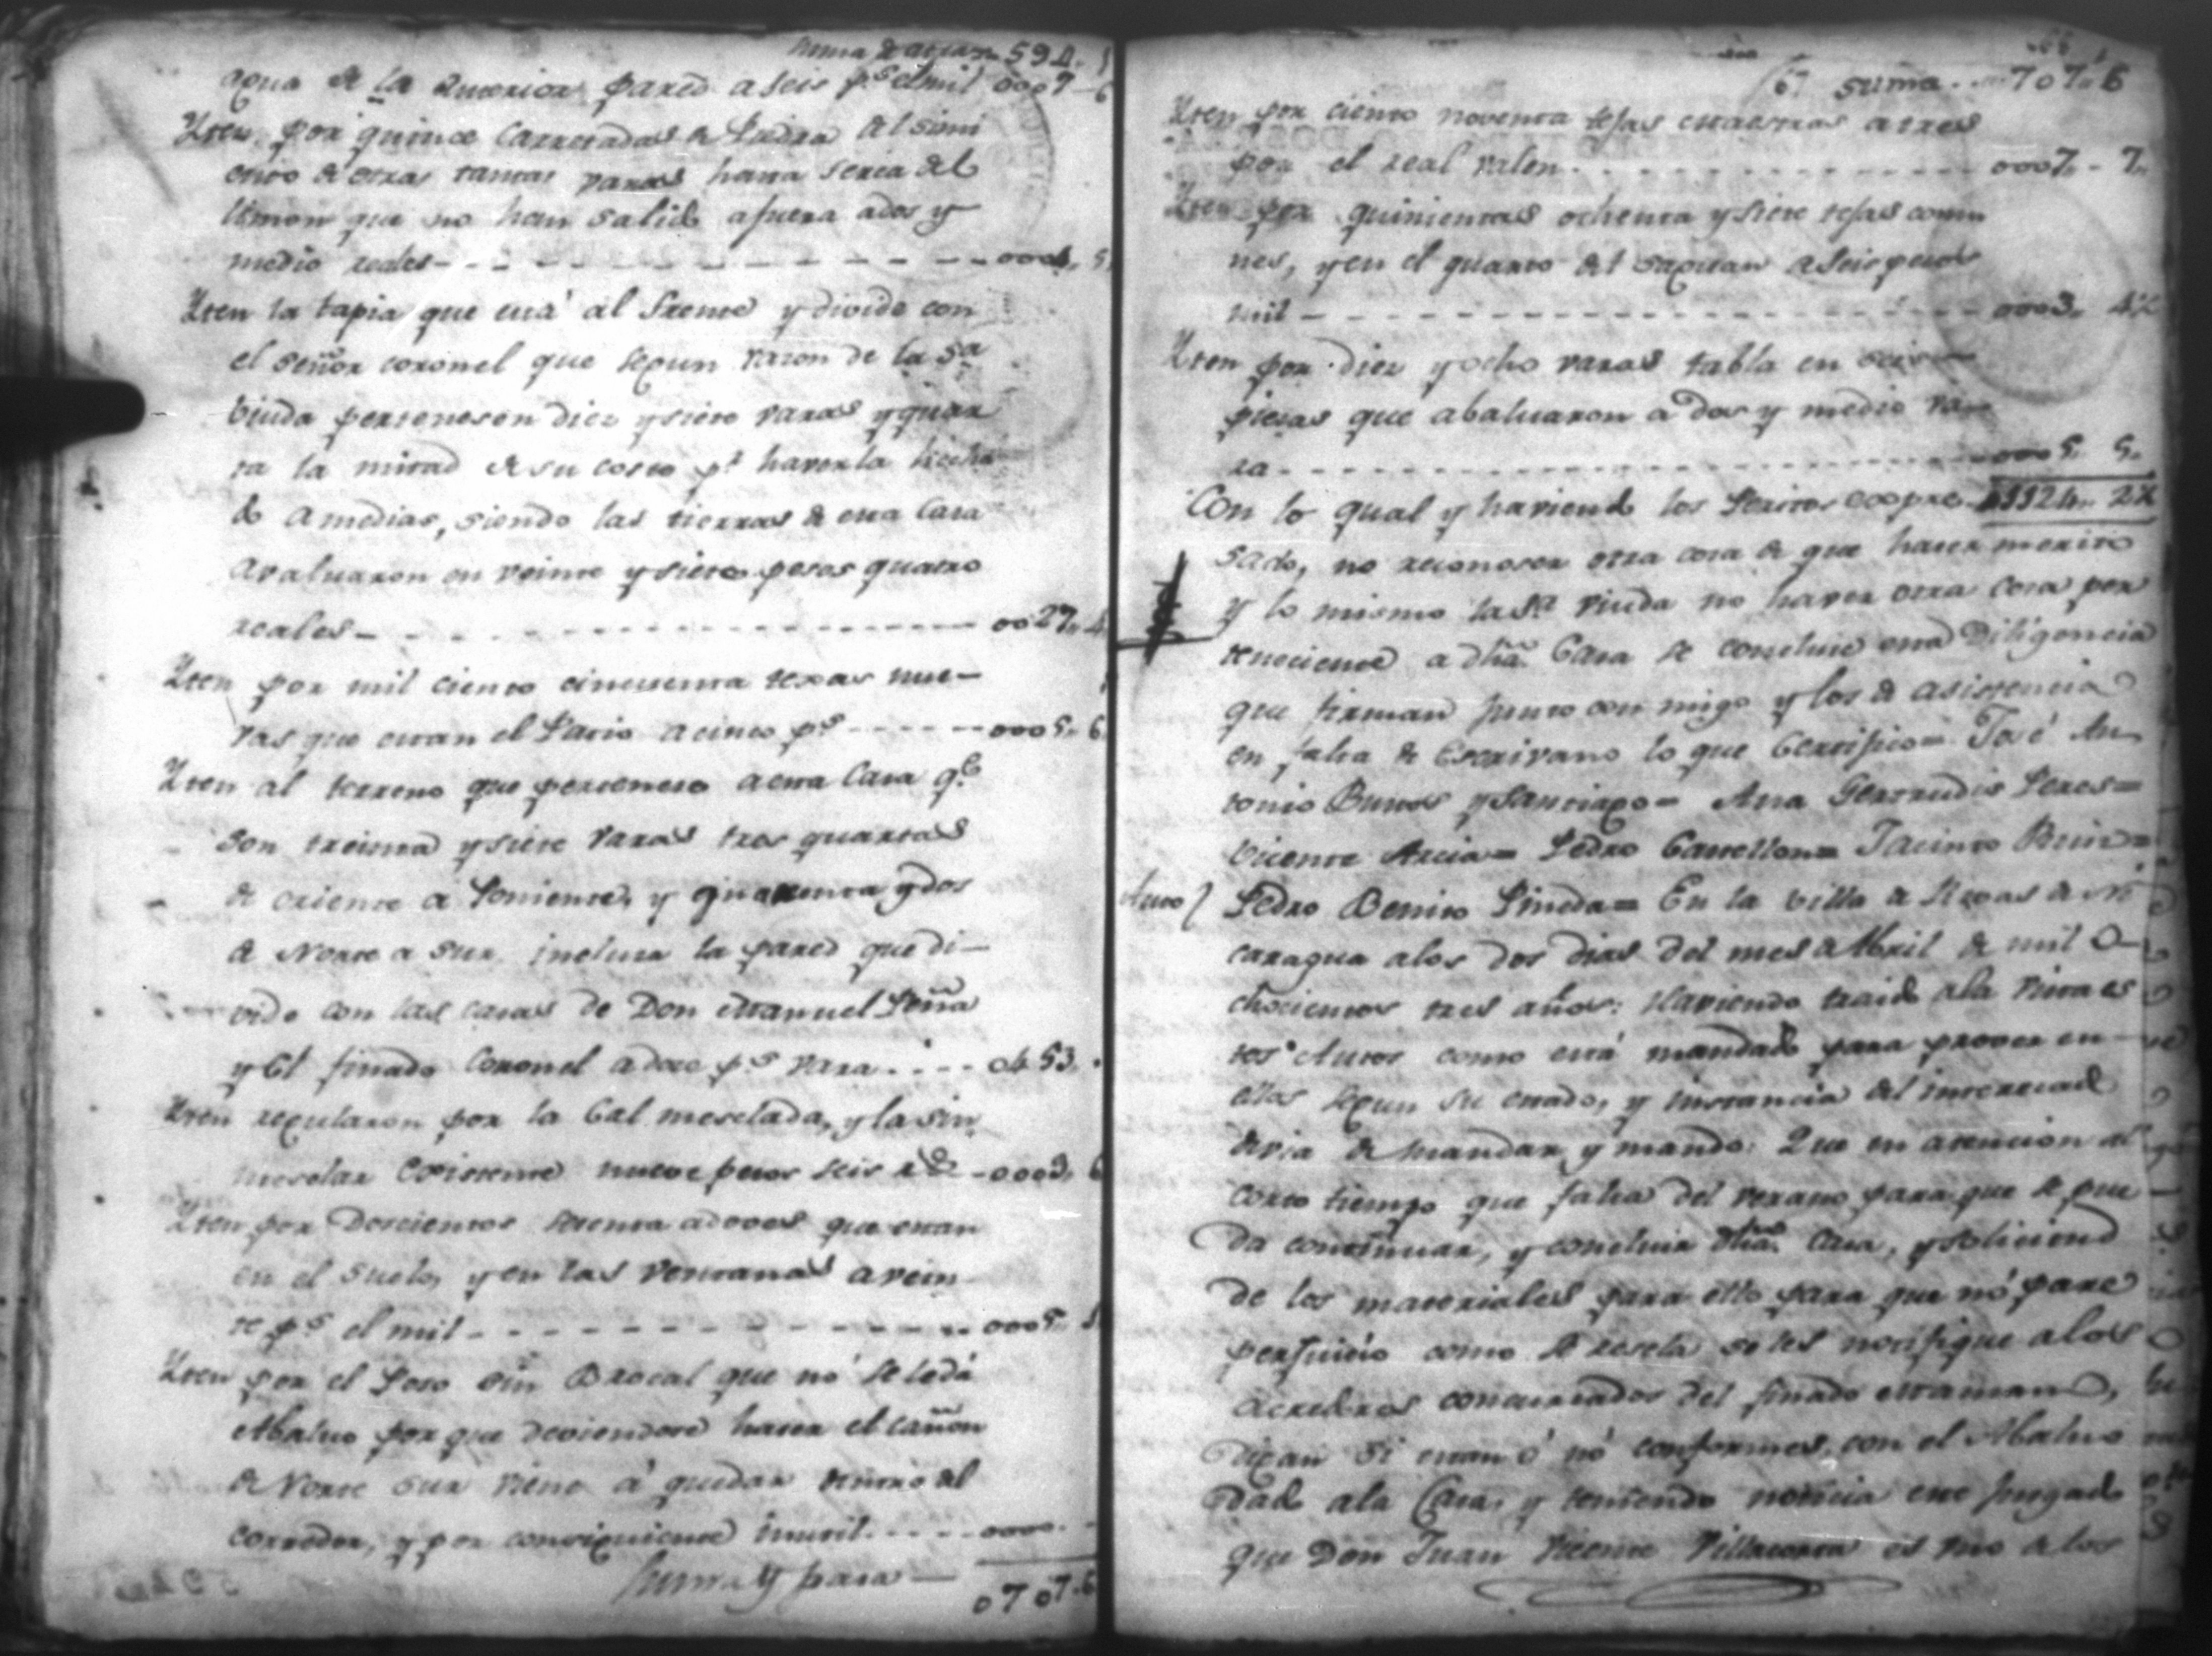 suma de atras 594. 1
agua de la Anterior pared a seis p.s el mil 0007-6
Yten por quince Carretadas de Piedra del simi
ento de otras tantas varas hasta serca del
limon que no han salido afuera a dos y
medio reales - - - 0004. 5.
Yten la tapia que está al frente y divide con
el señor coronel que segun razon de la S.a
Viuda pertenesen diez y siete varas y quar
ta la mitad de su costo p.r haverla hecho
de amedias, siendo las tierras de esta Casa
avaluaron en veinte y siete pesos quatro
reales - - - 0027,, 4
Yten por mil ciento cincuenta texas nue-
vas que estan el Patio a cinco p.s - - - 0005,, 6
Yten al terreno que pertenese a esta Casa q.e
son treinta y siete varas tres quartas
de oriente a Poniente, y quarenta y dos
de Norte a Sur inclusa la pared que di-
vide con las casas de Don Manuel Peña
y El finado Coronel a doce p.s vara . . . . 0453.
Yten regularon por la Cal mesclada, y la sin
mesclar Existente nueve pesos seis r.s - 0009,, 6
Yten por Doscientos setenta adoves que estan
en el suelo, y en las ventanas a vein
te p.s el mil - - - 0005,,
Yten por el Poso sin Brocal que nó se le dá
Abaluo por que deviendose hacer el cañon
de Norte Sur viene á quedar dentro del
corredor, y por consiguiente inutil. - - - 0000.
Suma y pasa — 0707.6
67 suma . . . 707,,6
Yten por ciento noventa tejas maestras a tres
por el real valen - - - 0007,, 7,,
Yten por quinientas ochenta y siete tejas comu
nes, y en el quarto del saguan a Seis pesos
mil - - - 0003,, 4½
Yten por diez y ocho varas tabla en seis
piezas que abaluaron a dos y medio va
ra - - - 0005,, 5,,
Con lo qual y haviendo los Peritos expre 1124,, 2½
sado, no reconoser otra cosa de que hacer merito
y lo mismo la S.a Viuda no haver otra cosa per
teneciente a dha. Casa se concluie esta Diligencia
que firman junto con migo y los de asistencia
en falta de Escrivano lo que Certifico= José An
tonio Bustos y Santiago= Ana Gertrudis Peres=
Vicente Arcia= Pedro Castellon= Jacinto Ruis=
Auto Pedro Benito Pineda= En la villa de Rivas de Ni
caragua a los dos dias del mes de Abril de mil O-
chocientos tres años: Haviendo traido ala vista es
tos Autos como está mandado para prover en
ellos segun su estado, y instancia del interesado
devia de mandar y mando: Que en atencion al
corto tiempo que falta del verano para que se pue
da continuar, y concluir dha. Casa, y solicitud
de los materiales para ello para que nó pare
perjuicio como se resela se les notifique a los
acredores concursados del finado Mamano,
digan si estan ó nó conformes con el Abaluo
dado ala Casa, y teniendo noticia este Jusgado
que Don Juan Vicente Villacorta es uno de los